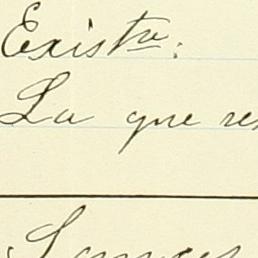 Existre.
La que res